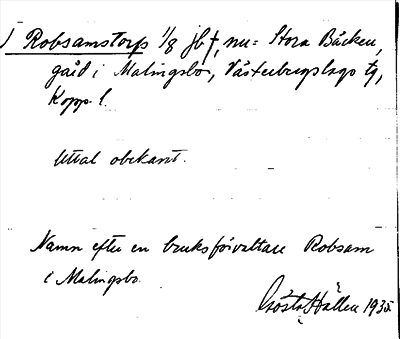 † Robsamstorp 1/8 jb †, nu = Stora Bäcken,
gård i Malingsbo, Västerbergslags tg,
Kopp. l.
Uttal obekant.
Namn efter en bruksförvaltare Robsam
i Malingsbo.
Gösta Hallen 1935